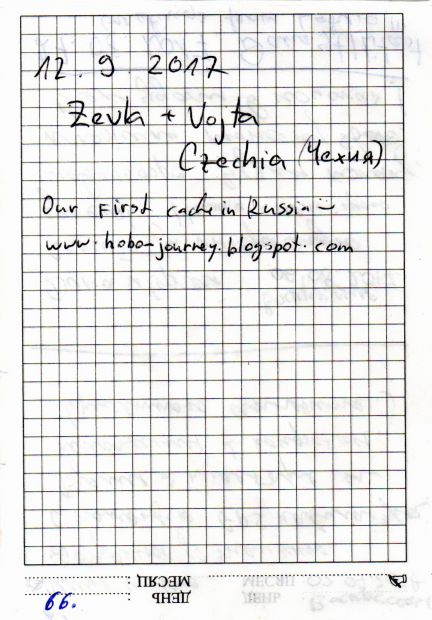 12. 9 2017
Zevla + Vojta
Czechia (Чехия)
Our First cache in Russia :-)
www.hobo-journey.blogspot.com
МЕСЯЦ :
ДЕНЬ :
66.